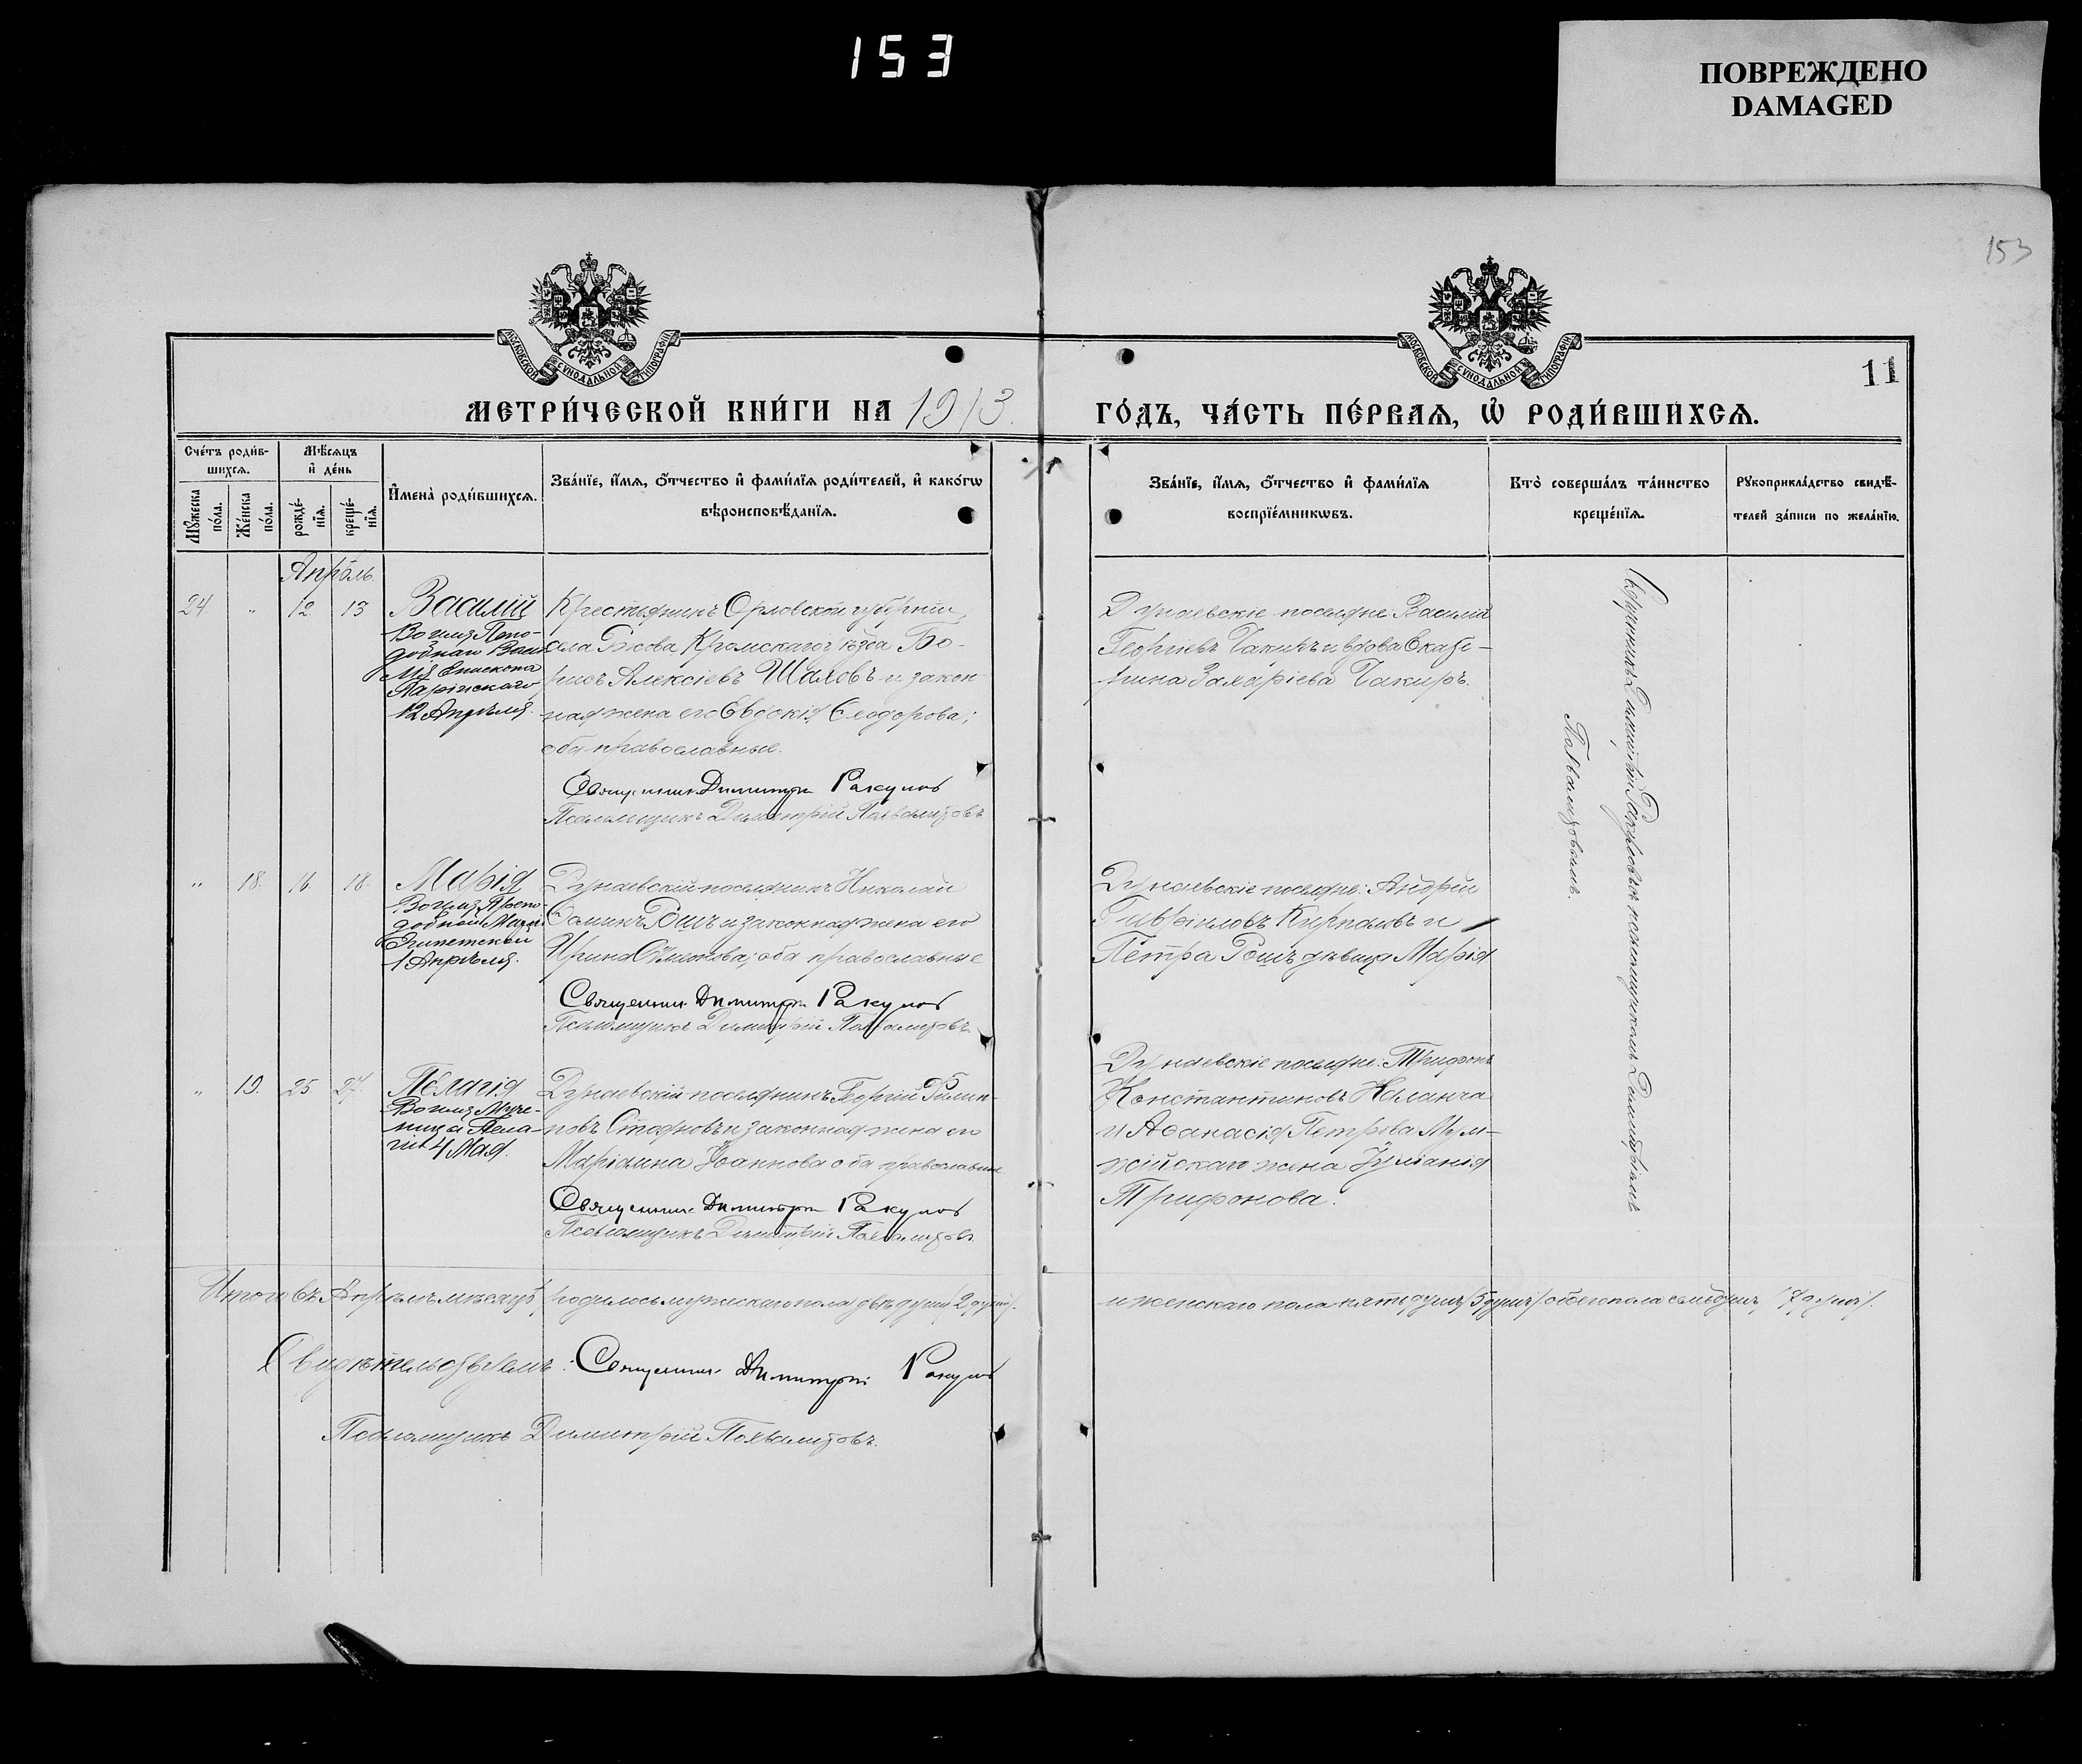 153
ПОВРЕЖДЕНО
DAMAGED
153
МОСКОВСКОЙ СѴНОДАЛЬНОЙ ТИПОГРАФІИ
МОСКОВСКОЙ СѴНОДАЛЬНОЙ ТИПОГРАФІИ
11
МЕТРИ́ЧЕСКОЙ КНИ́ГИ НА 1913.
ГО́ДЪ, ЧА́СТЬ ПЕ́РВАѦ, Ѡ҆ РОДИ́ВШИХСѦ.
Сче́тъ роди́в-
шихсѧ.
Мѣ́сѧцъ
и҆ де́нь
Мꙋ́жеска
по́ла.
Же́нска
по́ла.
рожде́-
нїѧ.
креще́-
нїѧ.
И҆мена̀ роди́вшихсѧ.
Зва́нїе, и҆́мѧ, ѻ҆́тчество и҆ фами́лїѧ роди́телей, и҆ како́гѡ
вѣроисповѣ́данїѧ.
Зва́нїе, и҆́мѧ, ѻ҆́тчество и҆ фами́лїѧ
воспрїе́мникѡвъ.
Кто̀ соверша́лъ та́инство
креще́нїѧ.
Рꙋкоприкла́дство свидѣ́-
телей за́писи по жела́нїю.
Апрѣль.
24. " 12 13 Василій
Во имя Препо-
добнаго Васи-
лія Епископа
Парійскаго
12 Апрѣля.
Крестьянинъ Орловской губерніи,
села Кромскаго уѣзда Бо-
рисъ Алексіевъ Шаховъ и закон-
ная жена его Евдокія Ѳеодорова;
оба православные.
Священник Димитрій Ракулов
Псаломщикъ Димитрій Похвалитовъ
Дунаевскіе поселяне Василій
Георгіевъ Чакиръ и вдова Екате-
рина Захаріева Чакиръ.
Священникъ Димитрій Ракуловъ съ псаломщикомъ Димитріемъ
Похвалитовымъ.
" 18. 16. 18. Марія
Во имя Препо-
добной Маріи
Египетской
1 Апрѣля.
Дунаевскій поселянинъ Николай
Ѳоминъ Рошъ и законная жена его
Ирина Симеонова; оба православные
Священник Димитрій Ракулов
Псаломщикъ Димитрій Похвалитовъ
Дунаевскіе поселяне: Андрей
Гавріиловъ Кирпаловъ и
Петра Рошъ дѣвица Марія
" 19. 25 27. Пелагія
Во имя Муче-
ницы Пела-
гіи 4 Мая.
Дунаевскій поселянинъ Георгій Филип-
повъ Стояновъ и законная жена его
Маріанна Іоаннова оба православные
Священник Димитрій Ракулов
Псаломщикъ Димитрій Похвалитовъ
Дунаевскіе поселяне: Трифонъ
Константиновъ
и Аѳанасія Петрова
жена Іуліанія
Трифонова.
Итого въ Апрѣлѣ мѣсяцѣ родилось мужскаго пола двѣ души /2 души/.
и женскаго пола пять душъ /5 душъ/ обоего пола семь душъ /7 душъ/.
Свидѣтельствуемъ: Священник Димитрій Ракулов
Псаломщикъ Димитрій Похвалитовъ.